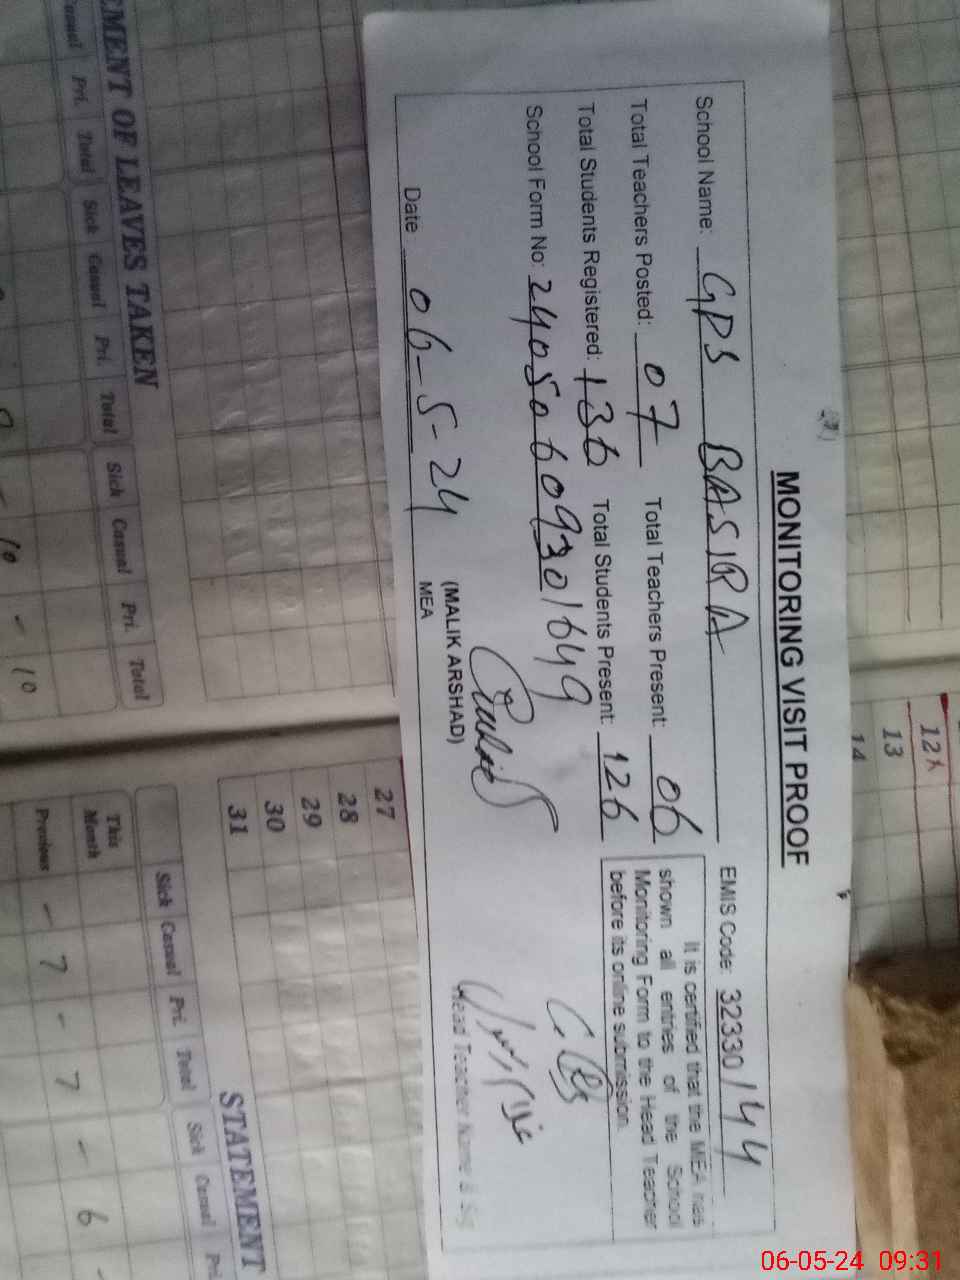 MONITORING VISIT PROOF
School Name: GPS BASIRA EMIS Code: 32330144
Total Teachers Posted: 07 Total Teachers Present: 06
Total Students Registered: 136 Total Students Present: 126
School Form No: 24050609301649
It is certified that the MEA has
shown all entries of the School
Monitoring Form to the Head Teacher
before its online submission.
Date 06-5-24
(MALIK ARSHAD)
MEA
Head Teacher Name & Sig
12
13
14
27
28
29
30
31
EMENT OF LEAVES TAKEN
Casual Pri. Total Sick Casual Pri. Total Sick Casual Pri. Total
10 - 10
STATEMENT
Sick Casual Pri. Total Sick Casual Pri.
This Month
Previous - 7 - 7 - 6 -
06-05-24 09:31